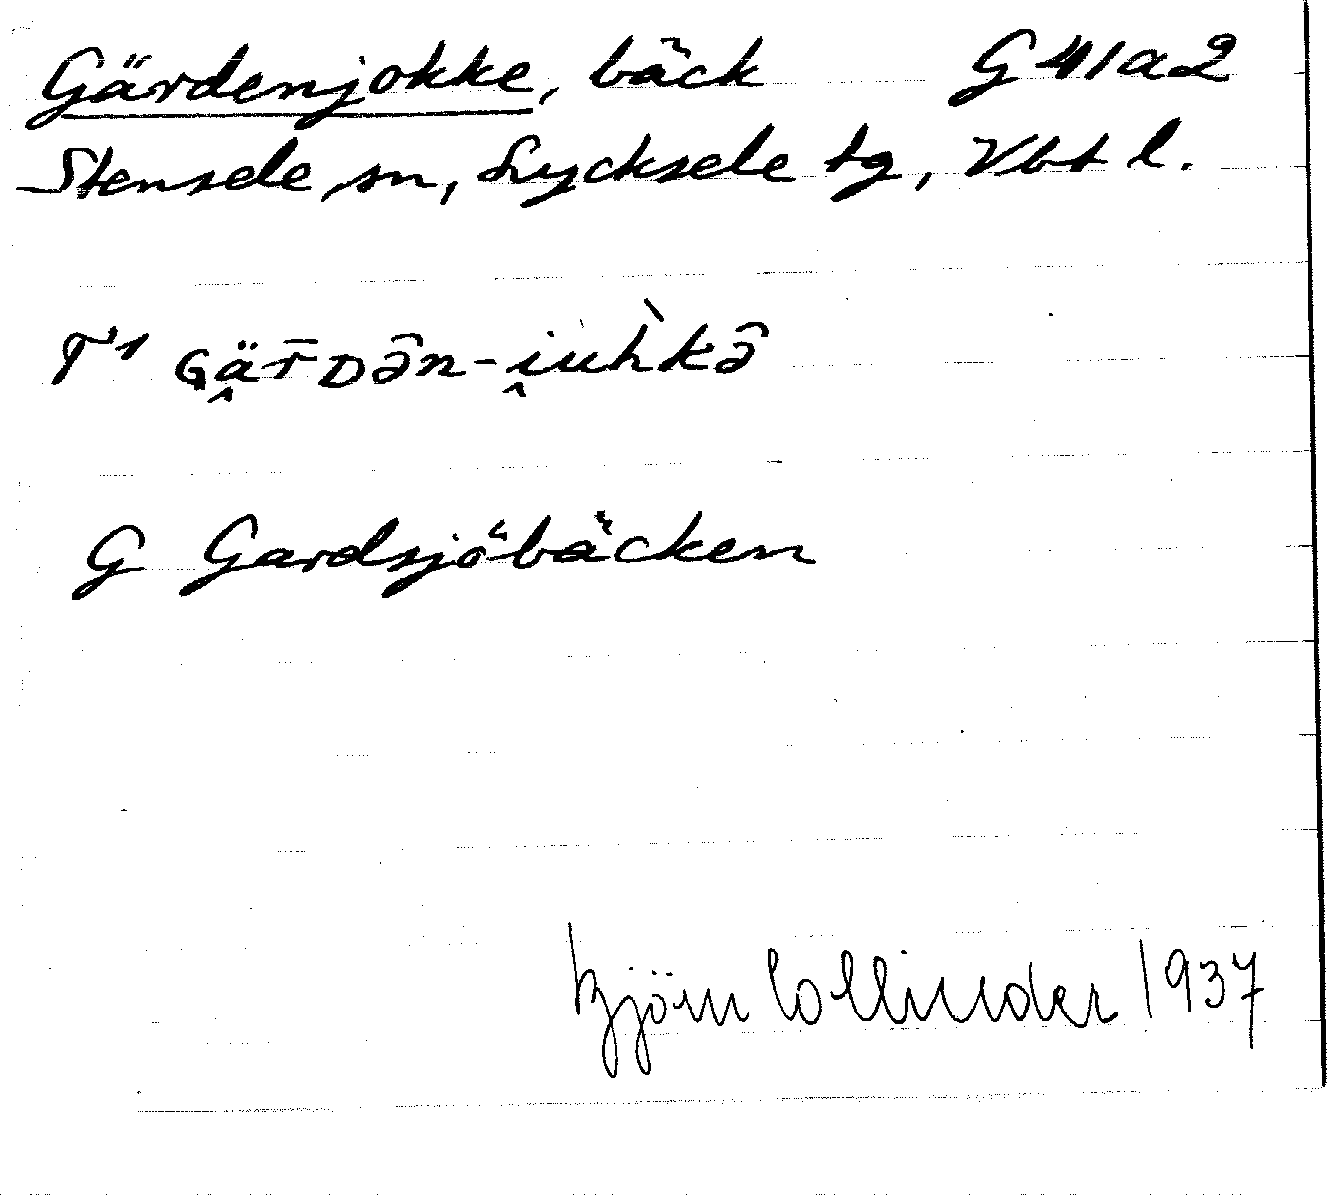 Gärdenjokke, bäck G 41 a 2
Stensele sn, Lycksele tg, Vbt l.
T¹ Gä̭r̄Də̑n-i̭uh̀kə̑
G Gardsjöbäcken
Björn Collinder 1937